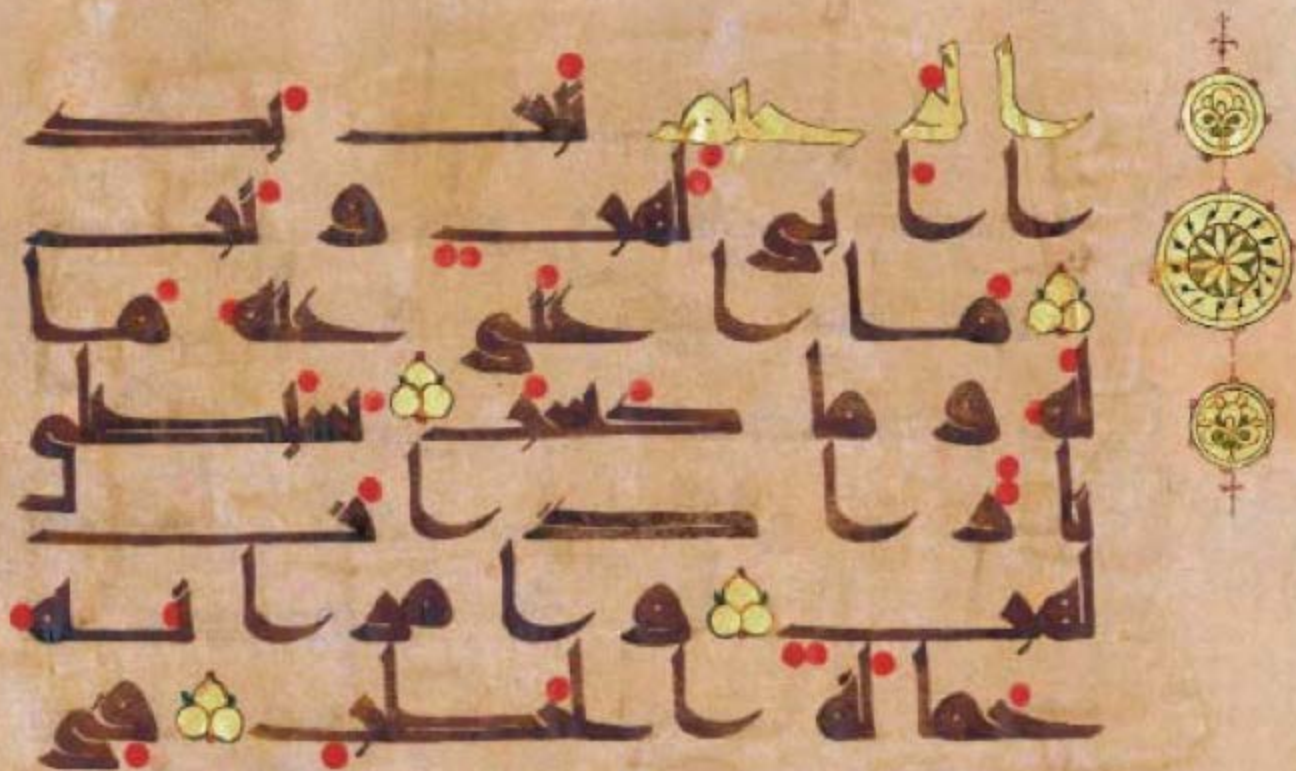 الرحيم تبت يد
ا ابي لهب و تب
ما اغنى عنه ما
له و ما كسب سيصلى
نارا ذات
لهب و امراته
حمالة الحطب في